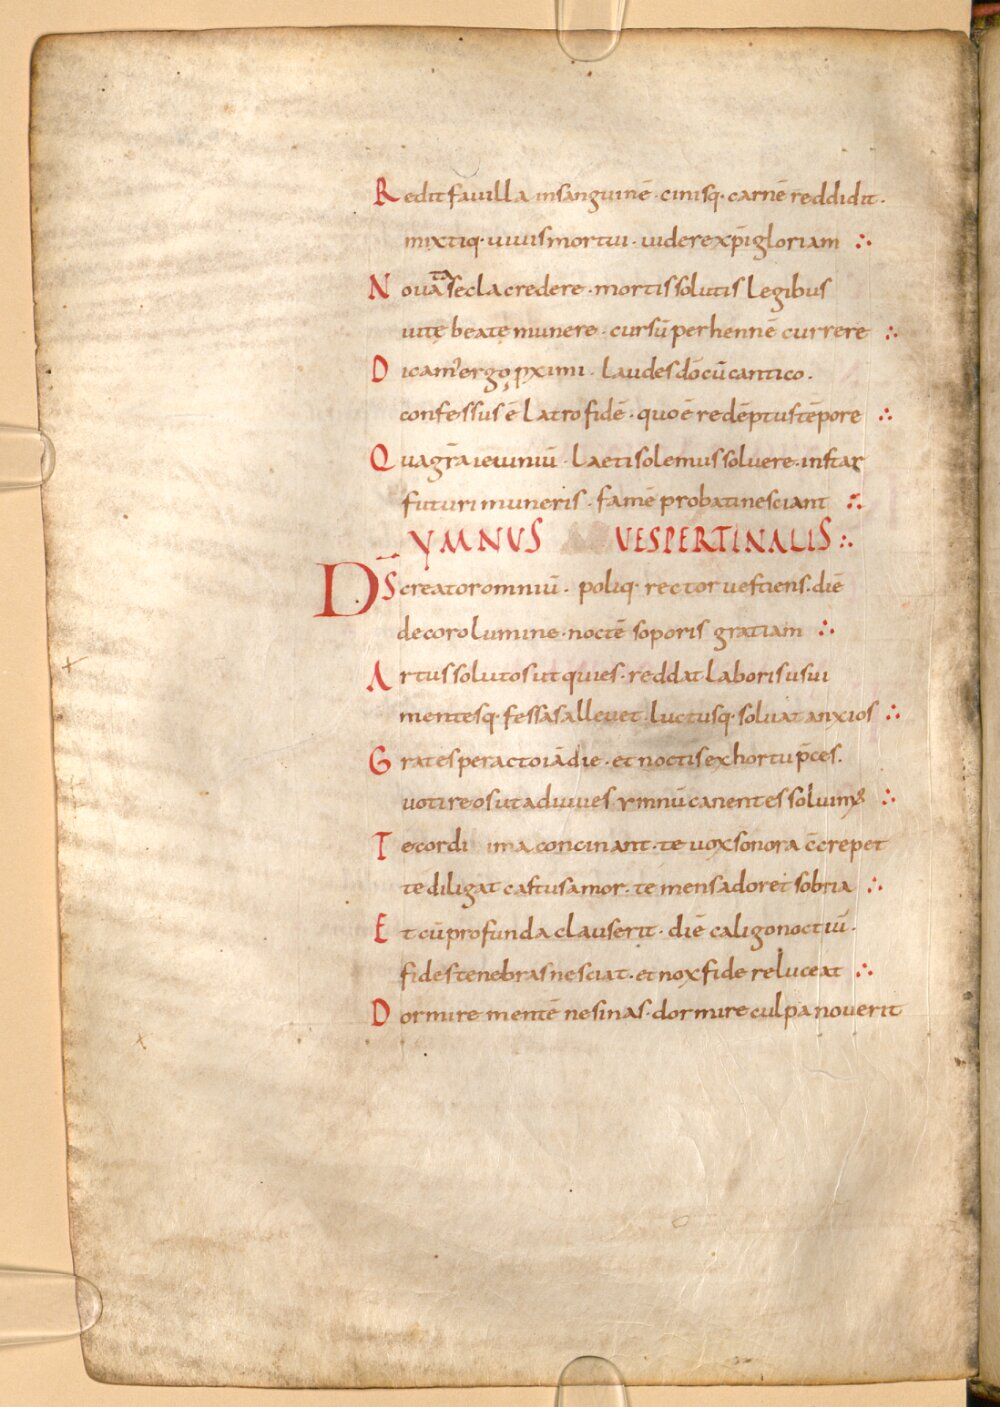 Redit favilla insanguinē · cinisq· carnē reddidit·
mixtiq· vivis mortui · videre xp̄i gloriam ∴
Nova ta secla credere · mortis solutis legibus
vitę beatę munere · cursū perhennē currere ∴
Dicam' ergo pximi · laudes dō cū cantico ·
confessus ē latro fidē · quo ē redēptus tēpore ∴
Qua gr̄a ieiuniū · laeti solemus solvere · instar
futuri muneris · famē probati nesciant ∴
YMNUS VESPERTINALIS ∴
DS̄ creator omniū · poliq· rector vestiens · diē
decoro lumine · noctē soporis gratiam ∴
Artus solutos ut quies · reddat laboris usui
mentesq· fessas allevet luctusq· solvat anxios ∴
Grates peracto iā die · et noctis exhortu p̄ces ·
voti reos ut adiuves ymnū canentes solvimꝰ ∴
Te cordi ima concinant · te vox sonora c̄crepet
te diligat castus amor · te mens adoret sobria ∴
Et cū profunda clauserit · diē caligo noctiū ·
fides tenebras nesciat · et nox fide reluceat ∴
Dormire mentē ne sinas · dormire culpa noverit